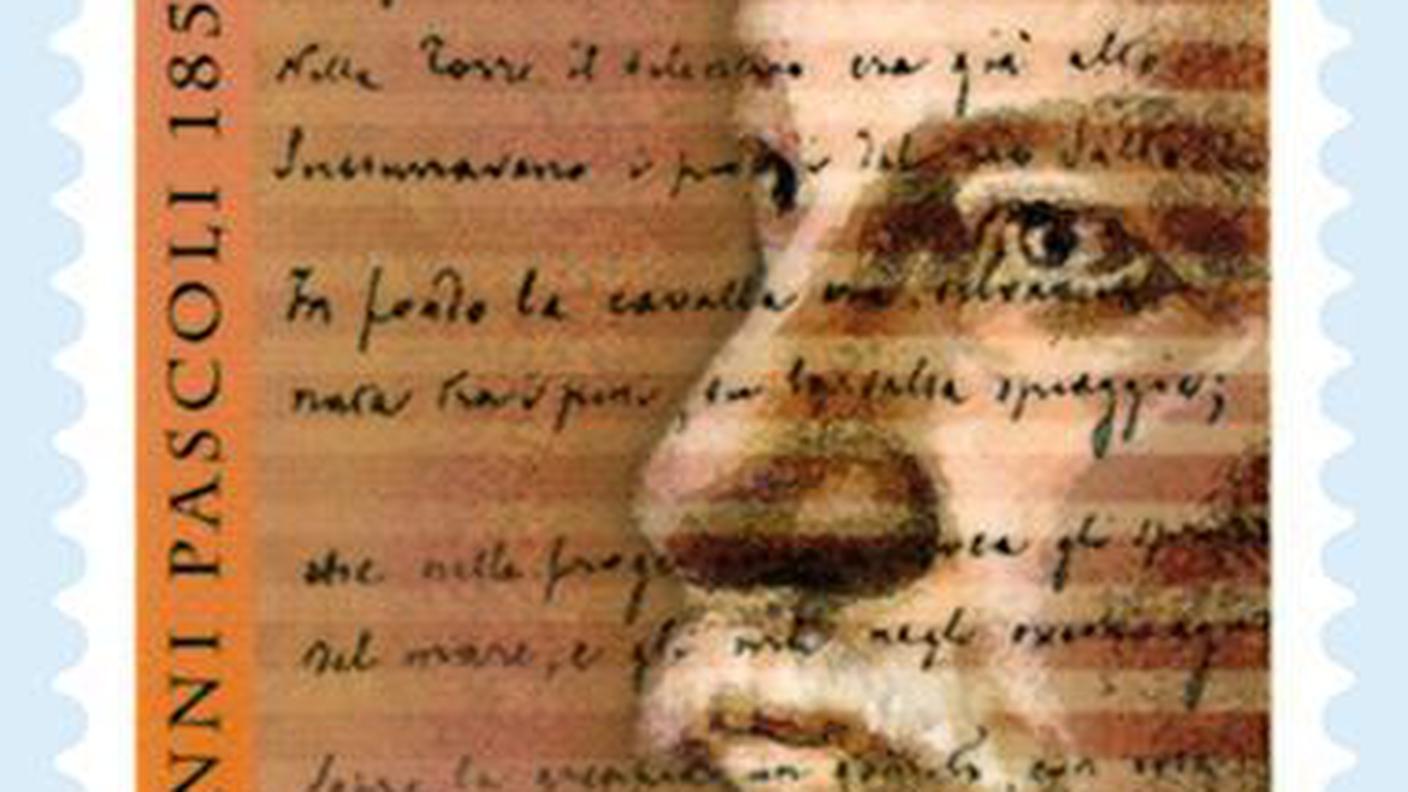 NNI PASCOLI 185
Nella Torre il silenzio era già alto
Sussurravano i pioppi del Rio Salto
In fondo la cavalla era
nata tra i pini su la salsa spiaggia;
che nelle gli
del mare, e gli urli negli
la un